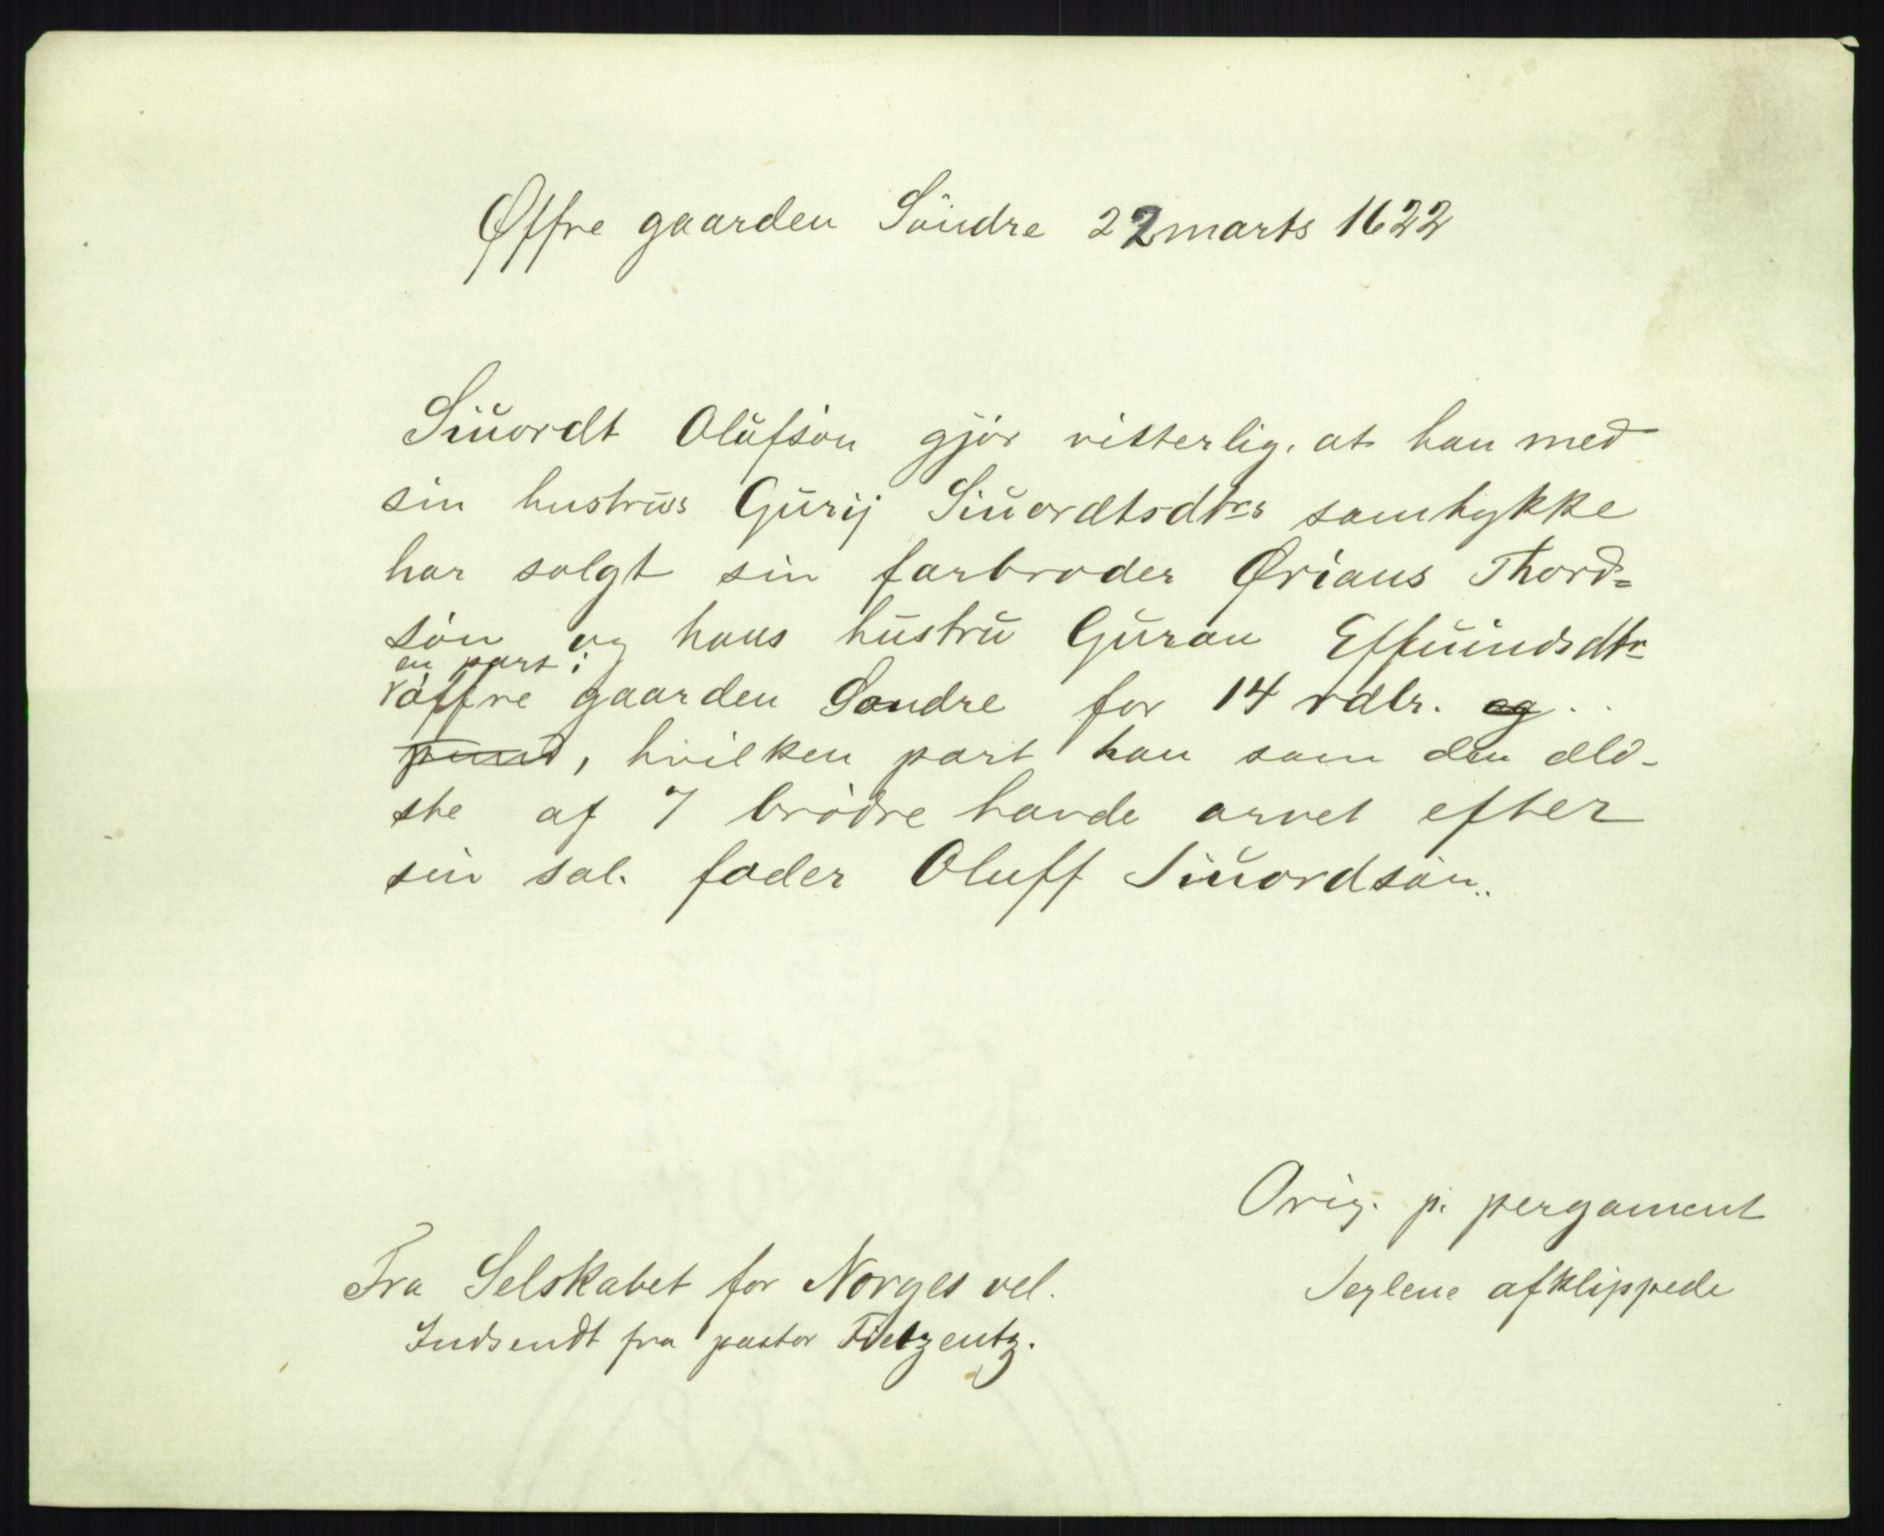 Øffre gaarden Söndre 22 marts 1622
Siŭordt Olŭfsön gjör vitterlig, at han med
sin hustrŭs Gŭrij Siŭordtsdtrs samtykke
har solgt sin farbroder Ørians Thord=
sön og hans hŭstrŭ Gŭran Effŭindsdtr
en part i
öffre gaarden Sondre for 14 rdlr. og . .
pund, hvilken part han som den æld-
ste af 7 brödre havde arvet efter
sin sal. fader Oluff Siŭordsön..
Orig. p. pergament
Fra Selskabet for Norges vel.
Seglene afklippede
Indsendt fra pastor Fietzentz.